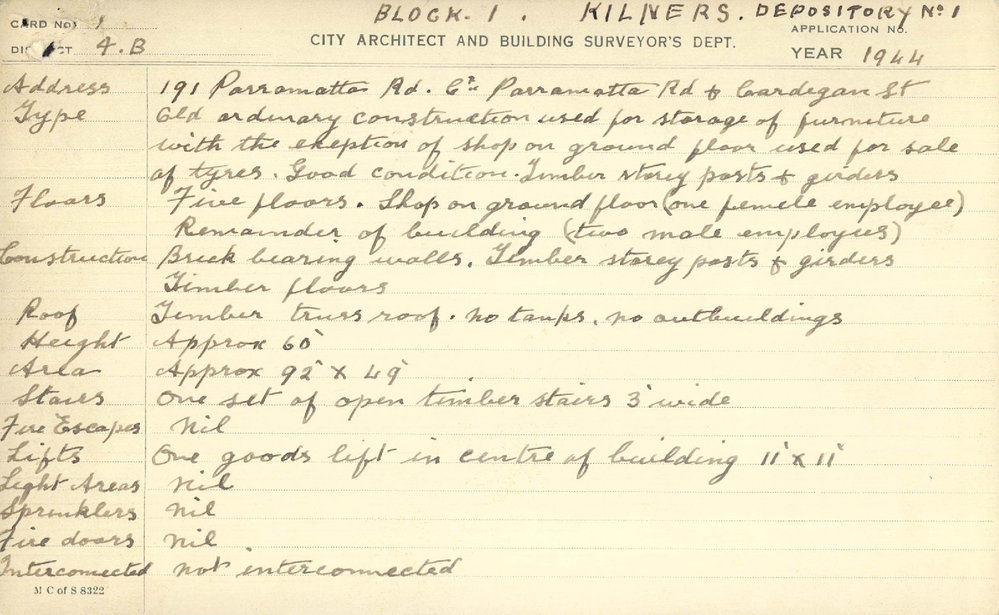 BLOCK. 1. KILNERS. DEPOSITORY No 1
CARD No. 1 APPLICATION No.
DISTRICT 4.B CITY ARCHITECT AND BUILDING SURVEYOR'S DEPT. YEAR 1944
Address 191 Parramatta Rd. Cr Parramatta Rd & Cardegan St
Type Old ordinary construction used for storage of furniture
with the exeption of shop on ground floor used for sale
of tyres. Good condition. Timber storey posts & girders
Floors Five floors. Shop on ground floor (one female employee)
Remainder of building (two male employees)
Construction Brick bearing walls. Timber storey posts & girders
Timber floors
Roof Timber truss roof. no tanks. no outbuildings
Height Approx 60'
Area Approx 92' x 49'
Stairs One set of open timber stairs 3' wide
Fire Escapes Nil
Lifts One goods lift in centre of building 11' x 11'
Light Areas Nil
Sprinklers Nil
Fire doors Nil
Interconnected not interconnected
M C of S 8322